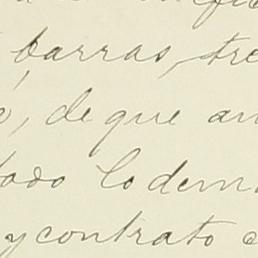 barras, tre
, de que an
tado lo dem
y contrato